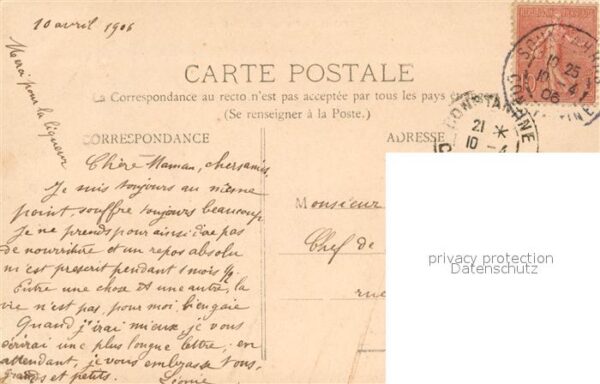 10 avril 1906
Merci pour la liqueur
CARTE POSTALE
La Correspondance au recto n'est pas acceptée par tous les pays étrangers
(Se renseigner à la Poste.)
CORRESPONDANCE
ADRESSE
Chère Maman, chers amis,
Je suis toujours au même
point, souffre toujours beaucoup
Je ne prends pour ainsi dire pas
de nourriture et un repos absolu
m'est prescrit pendant 1 mois ½.
Entre une chose et une autre, la
vie n'est pas, pour moi, bien gaie
Quand j'irai mieux, je vous
écrirai une plus longue lettre; en
attendant, je vous embrasse tous,
grands et petits.
Monsieur
Chef de
rue
10 25
10 -4
06
CONSTANTINE
21 *
10 -4
privacy protection
Datenschutz